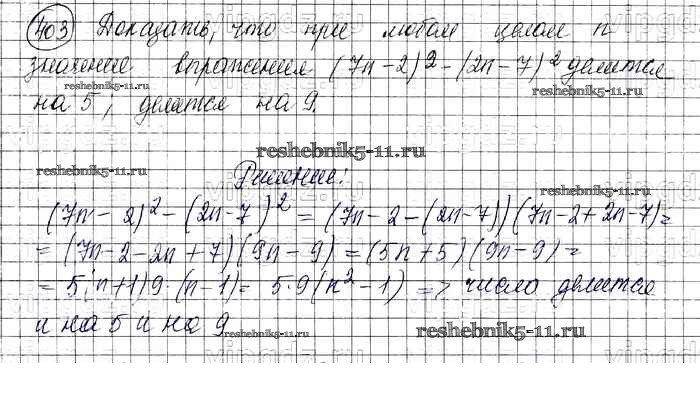 403 Доказать, что при любом целом n
значение выражения (7n-2)²-(2n-7)² делится
на 5, делится на 9.
reshebnik5-11.ru
reshebnik5-11.ru
reshebnik5-11.ru
reshebnik5-11.ru
Решение:
reshebnik5-11.ru
(7n-2)²-(2n-7)² = (7n-2-(2n-7))(7n-2+2n-7)=
= (7n-2-2n+7)(9n-9) = (5n+5)(9n-9)=
= 5(n+1)9·(n-1)= 5·9(n²-1) => число делится
и на 5 и на 9
reshebnik5-11.ru
reshebnik5-11.ru